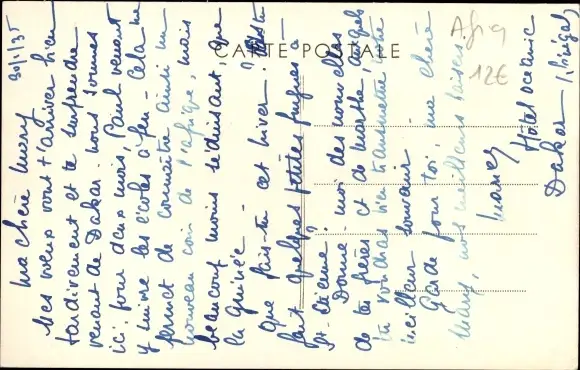 CARTE POSTALE
Afriq
12€
30/1/35
Ma chère Many
Mes vœux vont t'arriver bien
tardivement et te surprendre
venant de Dakar. Nous sommes
ici pour deux mois, Paul venant
y suivre les écoles à feu. Cela me
permet de connaître ainsi un
nouveau coin de l'afrique, mais
beaucoup moins séduisant que
la Guinée.
Que fais-tu cet hiver ? As-tu
fait quelques petites fugues à
St-Etienne ?
Donne-moi des nouvelles
de tes frères et de Marthe, auxquels
tu voudras bien transmettre notre
meilleur souvenir
Garde pour toi, ma chère
Many, nos meilleurs baisers.
Hôtel océanic
Dakar (Sénégal)